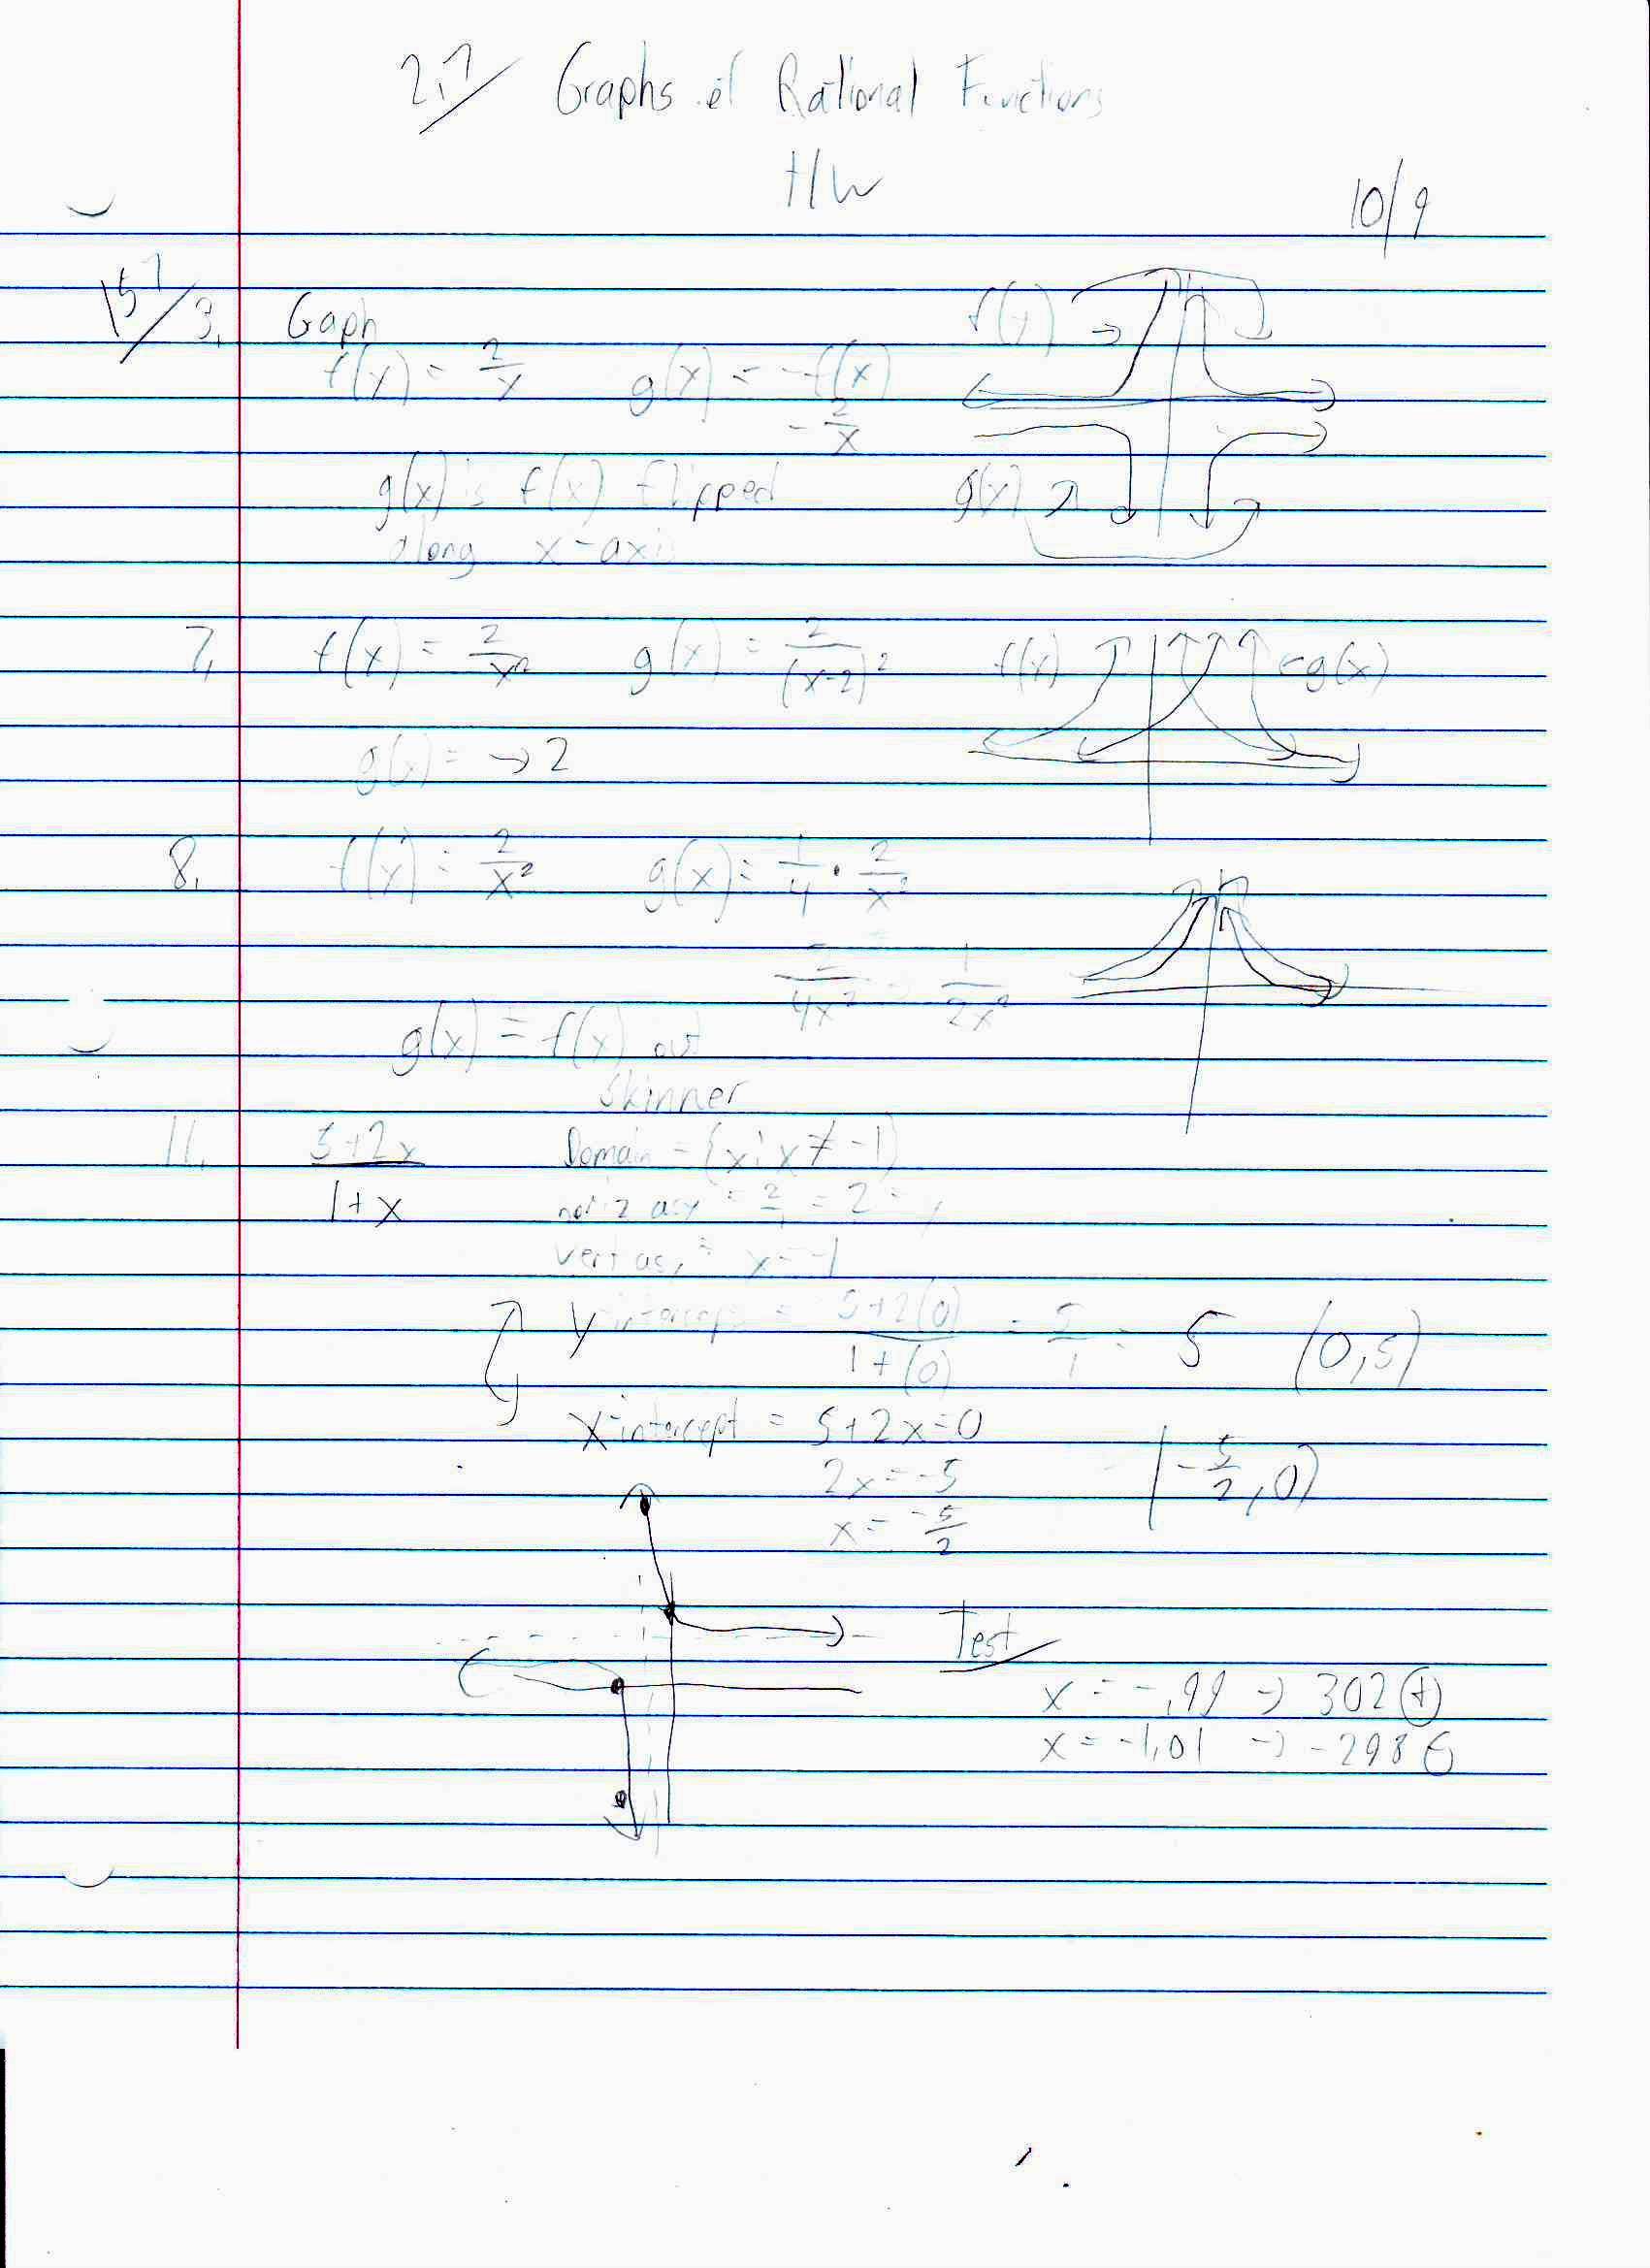 2.7 Graphs of Rational Functions
H/W
10/9
157/ 3. Gaph
f(x) →
f(x) = 2/x g(x) = -f(x)
- 2/x
g(x) is f(x) flipped g(x)
along x-axis
7. f(x) = 2/x² g(x) = 2/(x-2)² f(x) ←g(x)
g(x) = → 2
8. f(x) = 2/x² g(x) = 1/4 · 2/x²
2/4x² = 1/2x²
g(x) = f(x) but
skinner
11. 5+2x/1+x Domain = {x: x ≠ -1}
horiz asy = 2/1 = 2 = y
vert asy = x = -1
y-intercept = 5+2(0)/1+(0) = 5/1 = 5 (0,5)
x-intercept = 5+2x=0
2x = -5 (-5/2, 0)
x = -5/2
Test
x = -.99 → 302 (+)
x = -1.01 → -298 (-)